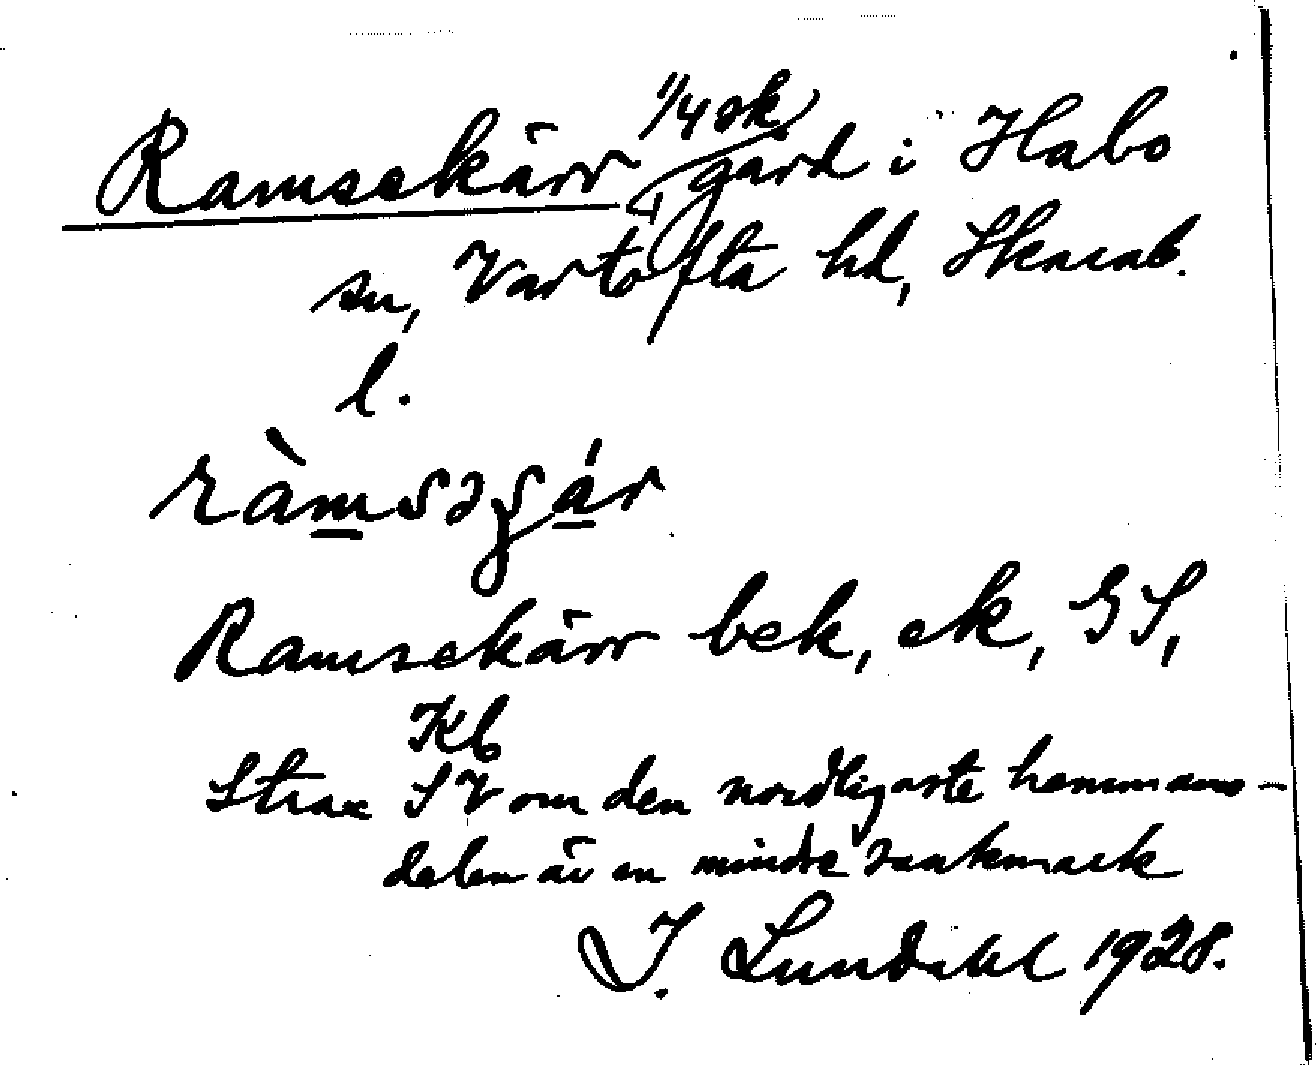 Ramsekärr 1/4 sk gård i Habo
sn, Vartofta hd, Skarab.
l.
ràmsəʒár
Ramsekärr bek, ek, GS,
Kb
Strax SV om den nordligaste hemmans-
delen är en mindre sankmark
I. Lundahl 1928.